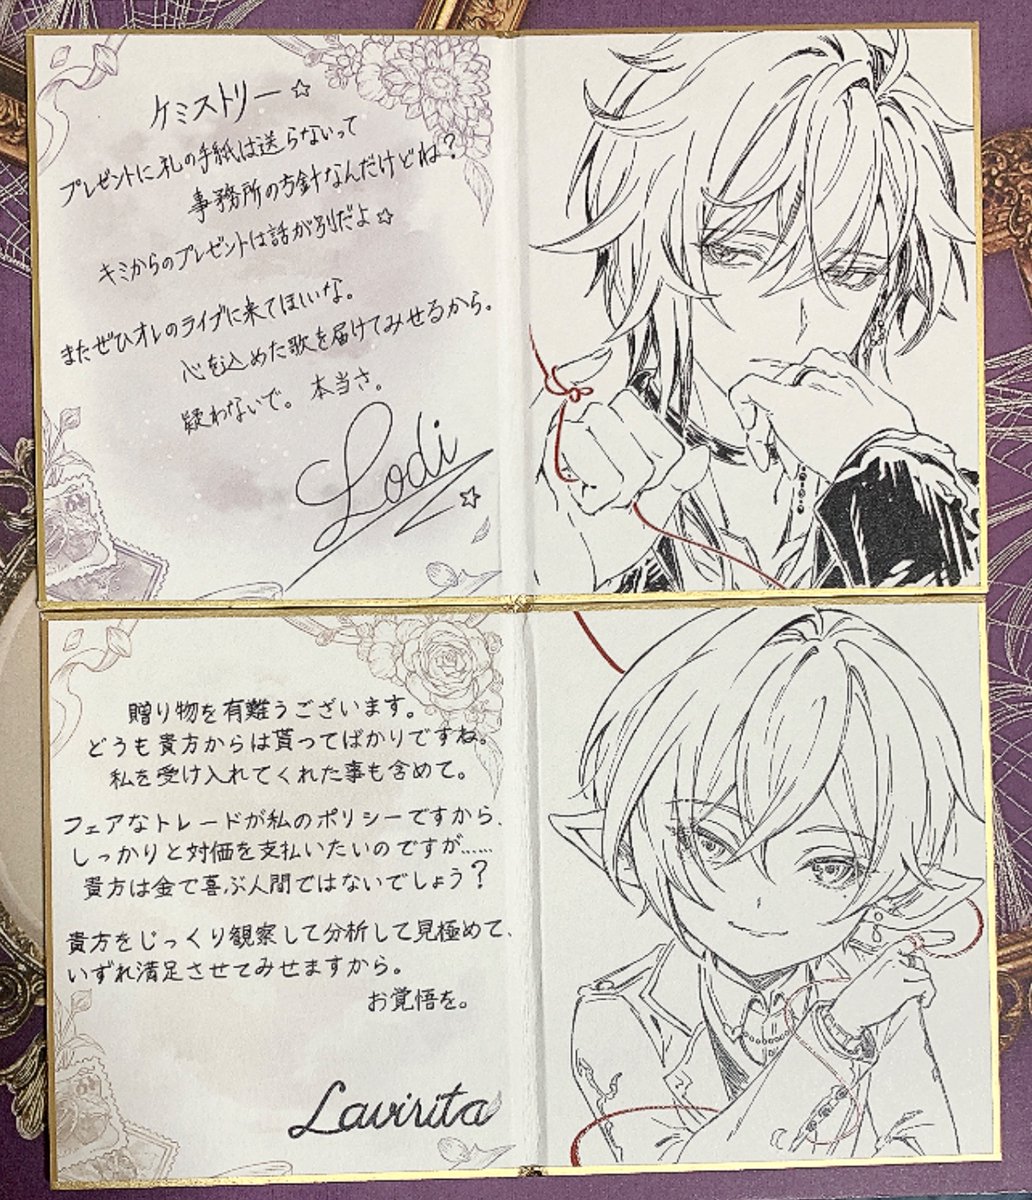 ケミストリー☆
プレゼントに礼の手紙は送らないって
事務所の方針なんだけどね?
キミからのプレゼントは話が別だよ☆
またぜひオレのライブに来てほしいな。
心を込めた歌を届けてみせるから。
疑わないで。本当さ。
Lodi☆
贈り物を有難うございます。
どうも貴方からは貰ってばかりですね。
私を受け入れてくれた事も含めて。
フェアなトレードが私のポリシーですから、
しっかりと対価を支払いたいのですが……
貴方は金で喜ぶ人間ではないでしょう?
貴方をじっくり観察して分析して見極めて、
いずれ満足させてみせますから。
お覚悟を。
Lavirita